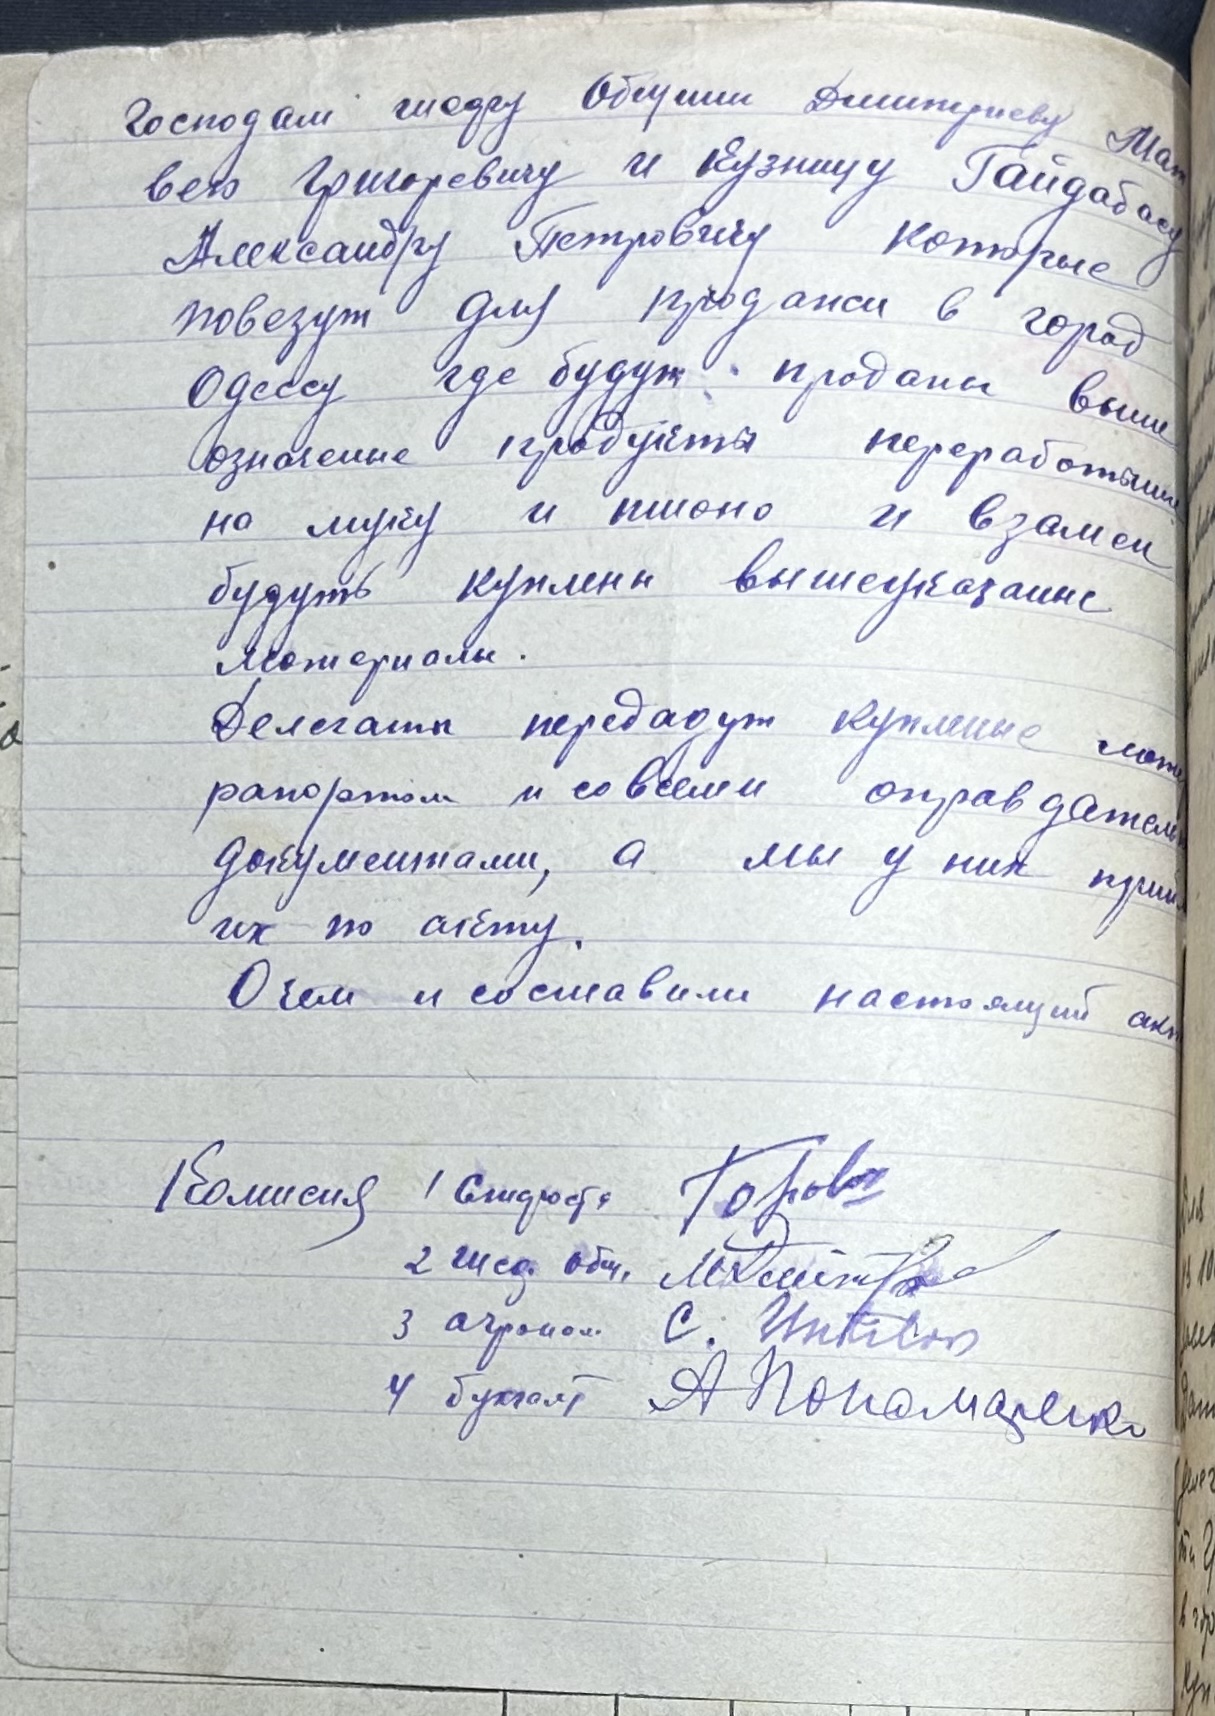 Господам шефу Общини Дмитриеву Мат
вею Григоревичу и Кузницу Гайдабасу
Александру Петровичу которые
повезут для продажи в город
Одессу где будут проданы выше
означеные продукты переработаные
на муку и пшоно и взамен
будуть куплены вышеуказаные
материалы.
Делегаты передадут купленые мате
рапортом и со всеми оправдатель
документами, а мы у них прий
их по акту.
О чем и составили настоящий акт
Комисия 1 Староста
2 шеф. общ. М Дмитр
3 агроном С.
4 бухгалт А Пономаренко